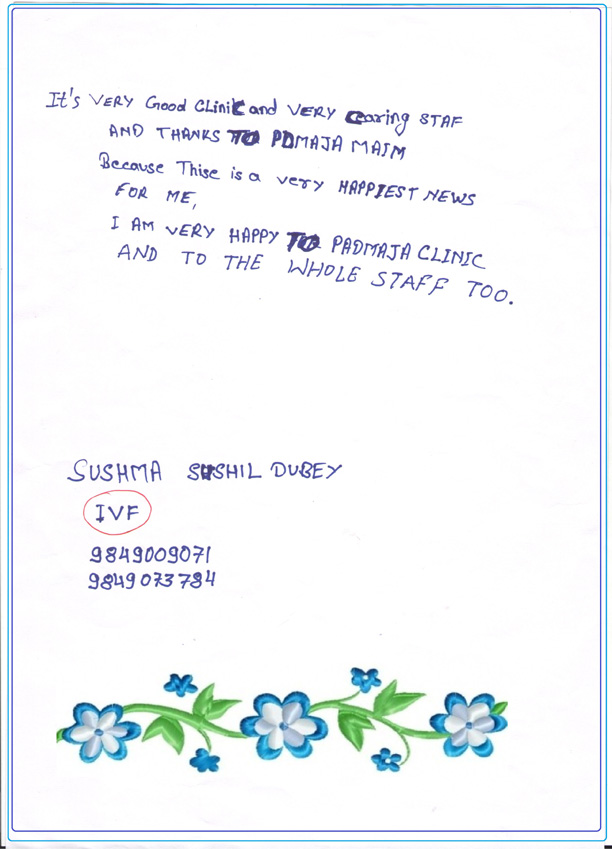 It's VERY Good CLiniC and VERY Caring STAF
AND THANKS TO PDMAJA MAIM
Because Thise is a very HAPPIEST NEWS
FOR ME,
I AM VERY HAPPY TO PADMAJA CLINIC
AND TO THE WHOLE STAFF TOO.
SUSHMA SUSHIL DUBEY
IVF
9849009071
9849073784